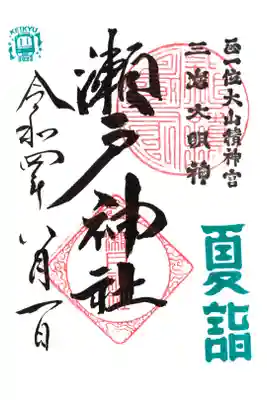 正一位大山積神宮
三島大明神
夏詣
瀬戸神社
令和四年八月一日
KEIKYU